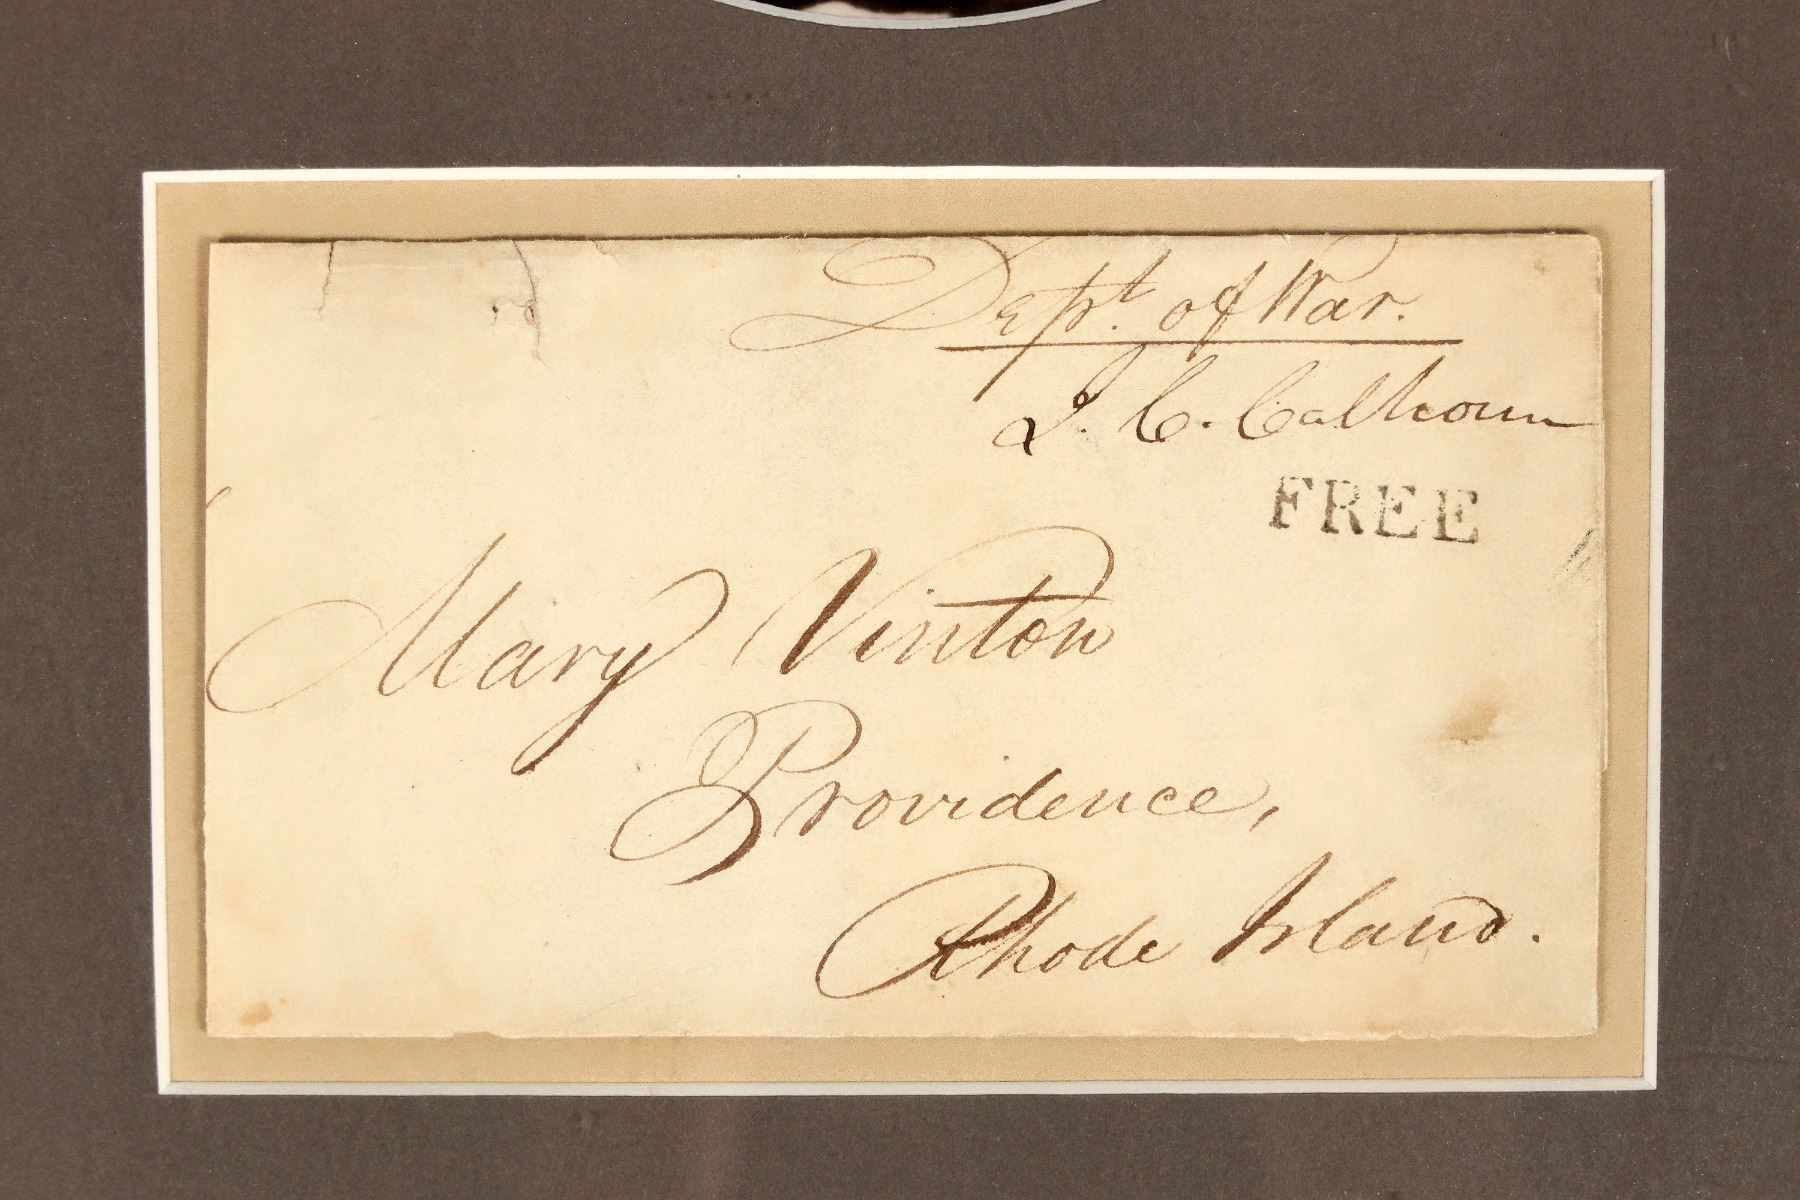 Dept. of War.
J. C. Calhoun
FREE
Mary Vinton
Providence,
Rhode Island.